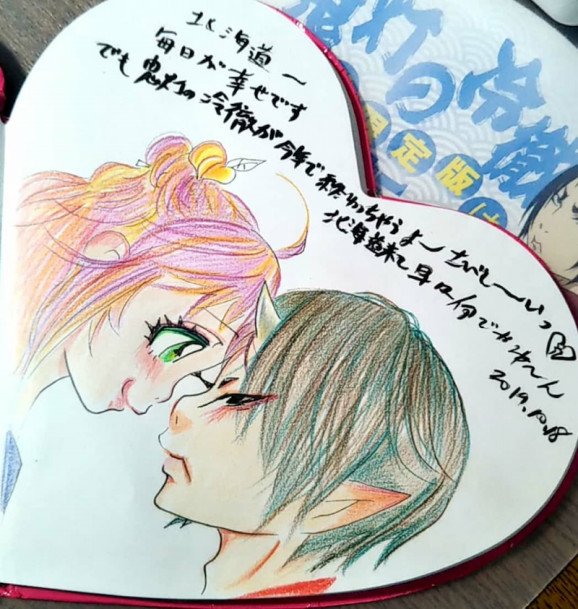 北海道〜
毎日が幸せです
でも 鬼灯の冷徹が今年で終わっちゃうよ〜さびし〜いっ
北海道来て早々何でかな〜ん
2019.10.18
鬼灯の冷徹
限定版は